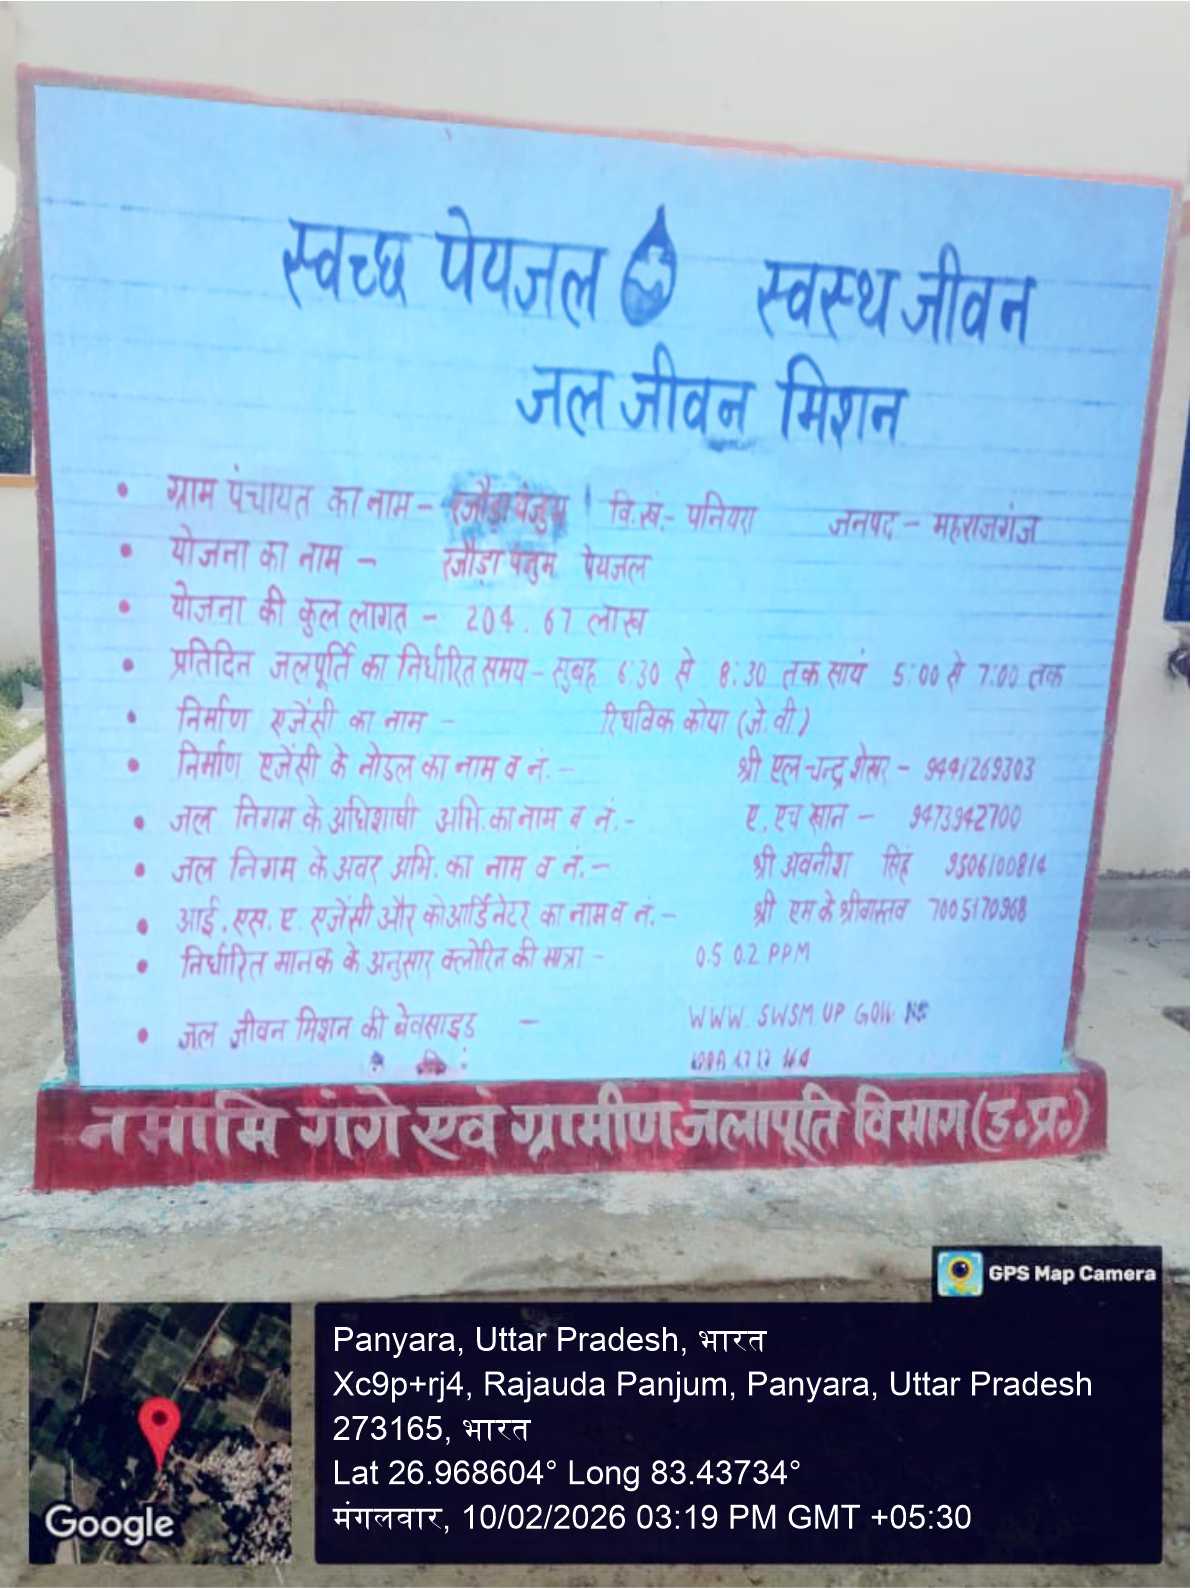 स्वच्छ पेयजल स्वस्थ जीवन
जल जीवन मिशन
• ग्राम पंचायत का नाम - रजौडा पंजुम वि.खं:- पनियरा जनपद - महराजगंज
• योजना का नाम - रजौडा पंजुम पेयजल
• योजना की कुल लागत - 204.67 लाख
• प्रतिदिन जलपूर्ति का निर्धारित समय - सुबह 6:30 से 8:30 तक सायं 5:00 से 7:00 तक
• निर्माण एजेंसी का नाम - रिथविक कोया (जे.वी)
• निर्माण एजेंसी के नोडल का नाम व नं. - श्री एल चन्द्र शेखर - 9441269303
• जल निगम के अधिशाषी अभि. का नाम व नं. - ए. एच खान - 9473942700
• जल निगम के अवर अभि. का नाम व नं. - श्री अवनीश सिंह 9506100814
• आई. एस. ए. एजेंसी और कोआर्डिनेटर का नाम व नं. - श्री एम के श्रीवास्तव 7005170968
• निर्धारित मानक के अनुसार क्लोरिन की मात्रा - 0.5 0.2 PPM
• जल जीवन मिशन की बेवसाइड - WWW. SWSM. UP GOW
नमामि गंगे एवं ग्रामीण जलापूर्ति विभाग (उ.प्र.)
GPS Map Camera
Panyara, Uttar Pradesh, भारत
Xc9p+rj4, Rajauda Panjum, Panyara, Uttar Pradesh
273165, भारत
Lat 26.968604° Long 83.43734°
मंगलवार, 10/02/2026 03:19 PM GMT +05:30
Google